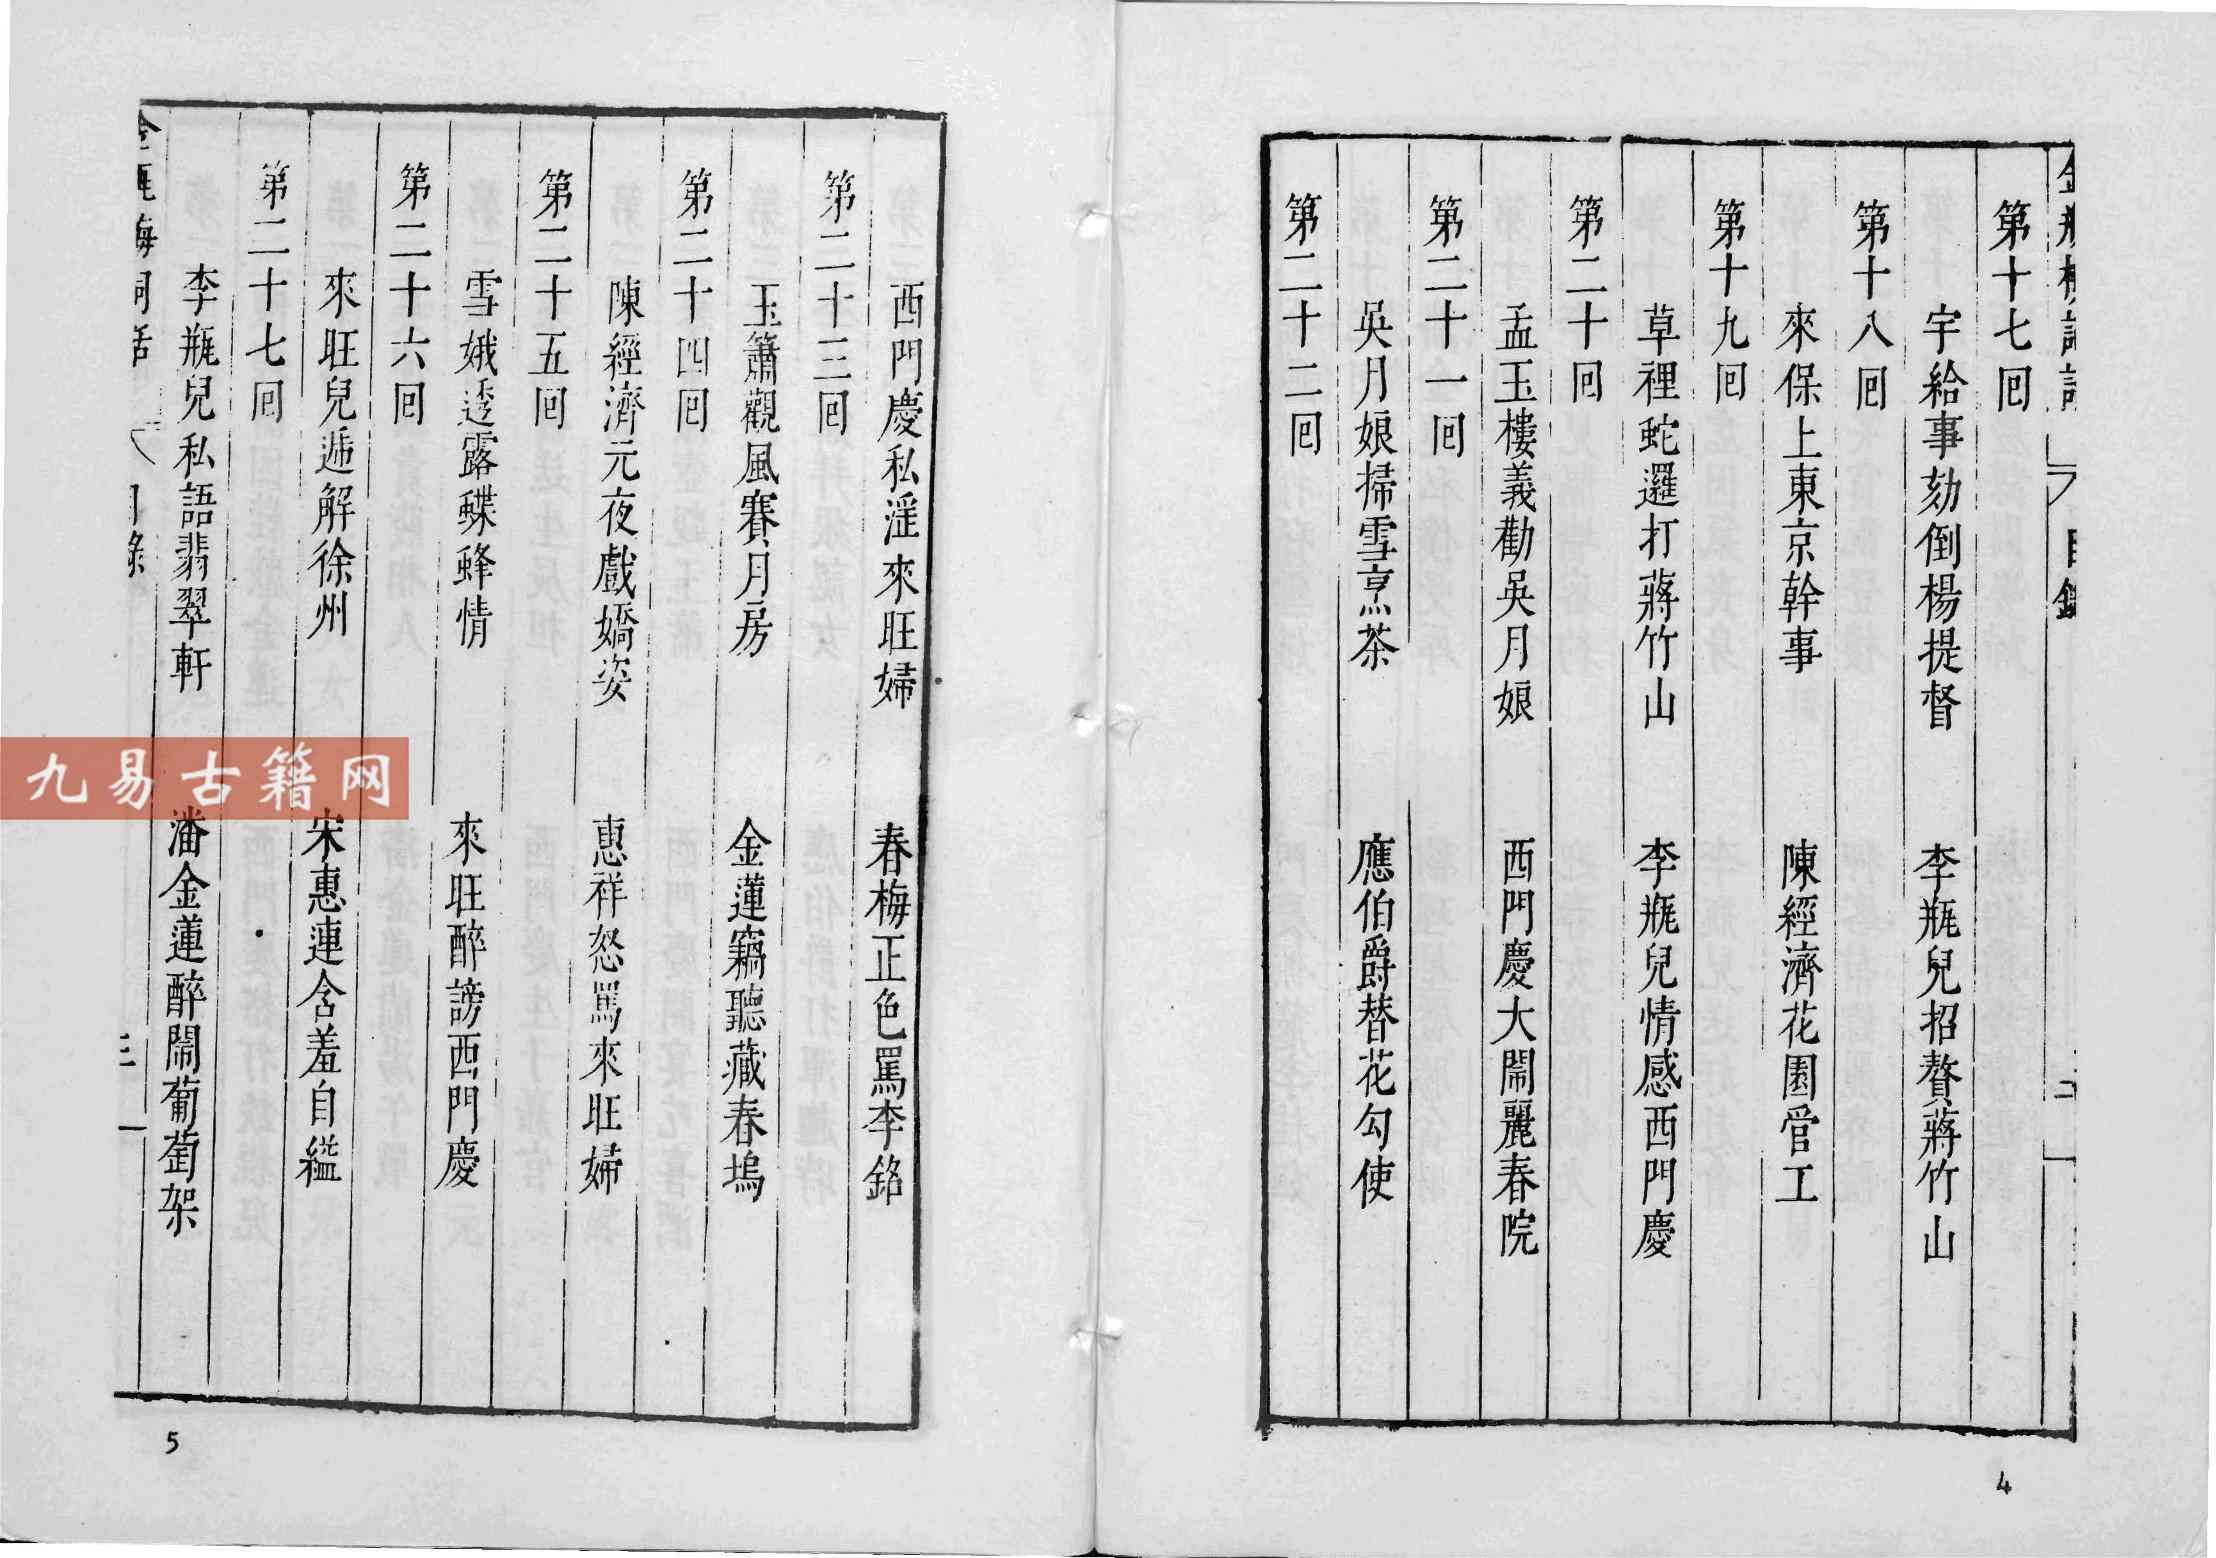 金瓶梅詞話 目錄 二
第十七回
宇給事劾倒楊提督 李瓶兒招贅蔣竹山
第十八回
來保上東京幹事 陳經濟花園管工
第十九回
草裡蛇邏打蔣竹山 李瓶兒情感西門慶
第二十回
孟玉樓義勸吳月娘 西門慶大鬧麗春院
第二十一回
吳月娘掃雪烹茶 應伯爵替花勾使
第二十二回
4
西門慶私淫來旺婦 春梅正色罵李銘
第二十三回
玉簫觀風賽月房 金蓮竊聽藏春塢
第二十四回
陳經濟元夜戲嬌姿 惠祥怒罵來旺婦
第二十五回
雪娥透露蝶蜂情 來旺醉謗西門慶
第二十六回
來旺兒遞解徐州 宋惠連含羞自縊
第二十七回
李瓶兒私語翡翠軒 潘金蓮醉鬧葡萄架
金瓶梅詞話 目錄 三
5
九易古籍网